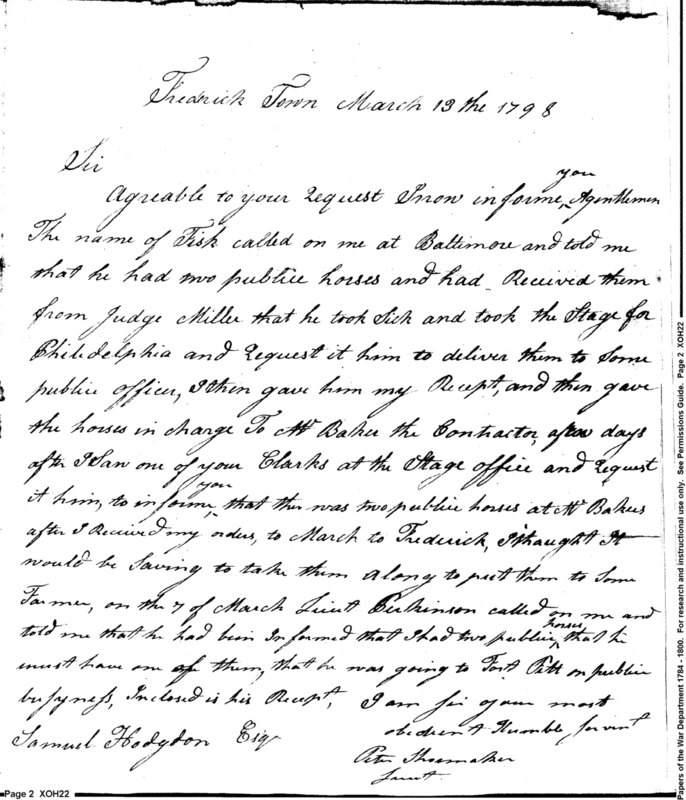 Frederick Town March 13 the 1798
Sir
you
Agreable to your Request I now informe, ^ A gentlemen
The name of Fisk called on me at Baltimore and told me
that he had two publice horses and had Received them
from Judge Miller that he took Sick and took the Stage for
Philidelphia and Request it him to deliver them to Some
publie officer, I then gave him my Recept, and then gave
the horses in charge To Mr Baker the Contractor, a few days
after I Saw one of your Clarks at the Stage office and Request
you
it him, to informe ^ that ther was two publice horses at Mr Bakers
after I Received my orders, to March to Frederick, I thaught It
would be Saving to take them along to put them to Some
Farmer, on the 7 of March Lieut Perkinson called on me and
horses
told me that he had been Informed that I had two publice ^ that he
must have one of them, that he was going to Fort Pitt on publice
busyness, Inclosed is his Recept, I am sir your most
obedient Humble, servent
Samuel Hodgdon Esqr
Peter Shoemaker
Lieut
Page 2 XOH22
Papers of the War Department 1784 - 1800. For research and instructional use only. See Permissions Guide. Page 2 XOH22